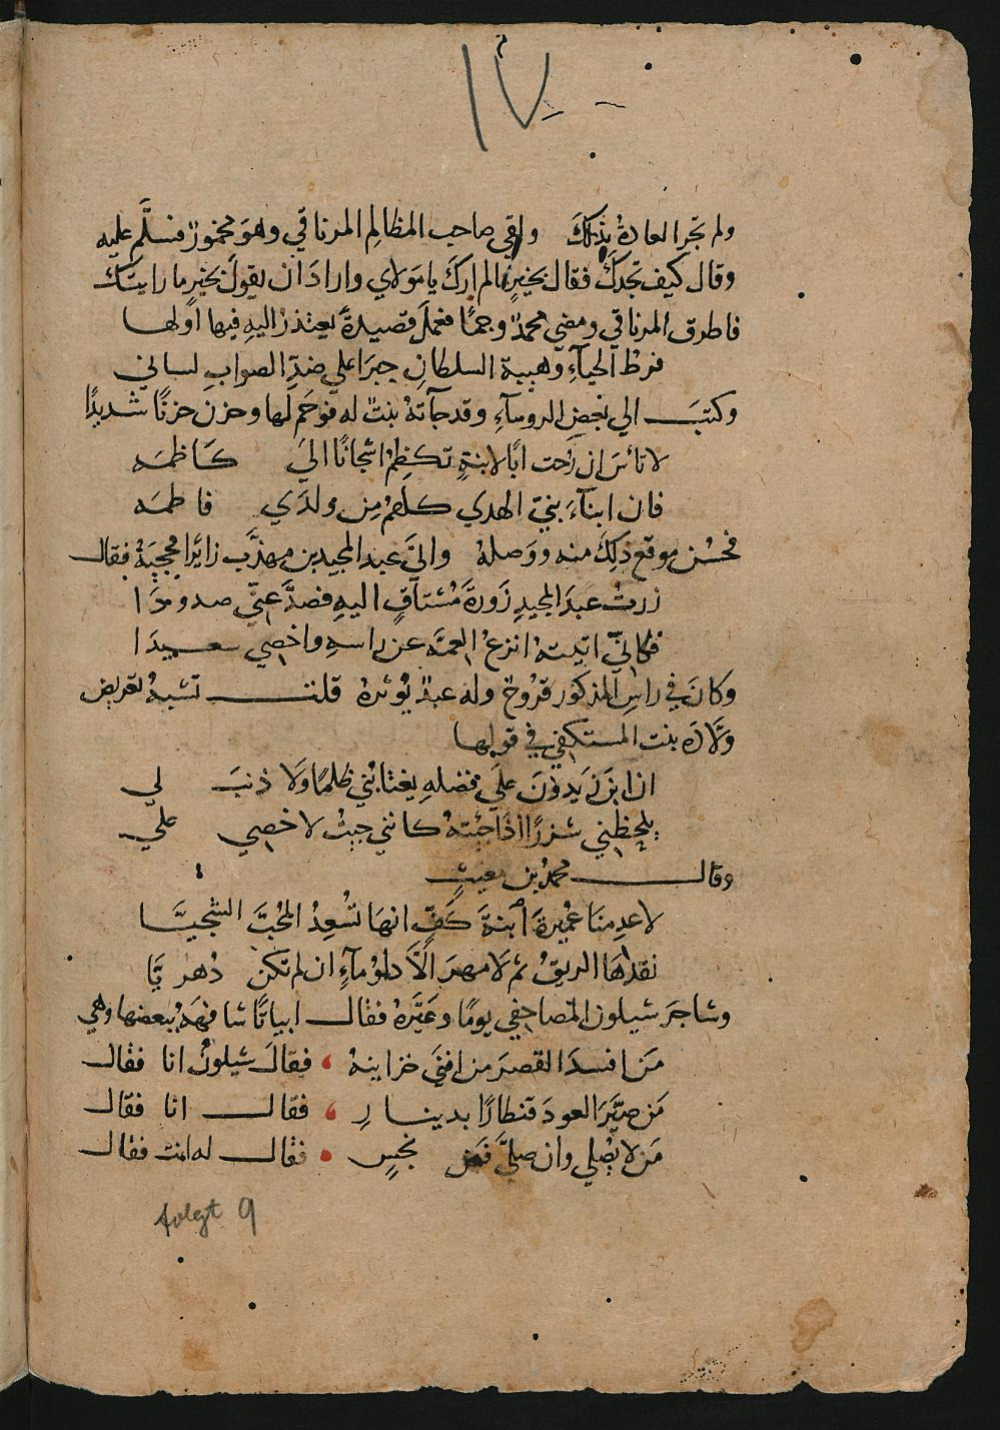 ١٧
ولم تجر العادة بذلك ولقي صاحب المظالم المرناقي وهو مخمور فسلَّم عليه
وقال كيف تجدك فقال بخير ما لم ارك يا مولاي واراد ان يقول بخير ما رايتك
فاطرق المرناقي ومضي محمد وجمًا فعمل قصيدةً يعتذر اليه فيها اولها
فرط الحيآءِ وهيبة السلطانِ جبرا علي ضدّ الصوابِ لساني
وكتبَ الي بعض الروسآءِ وقد جآته بنت له فوجم لها وحزن حزنًا شديدًا
لا تاس ان رحت ابًا لابنةٍ تكظم اشجانًا الي كاظمه
فان ابنآءَ نبيّ الهدي كلهم من ولدي فاطمه
فحسُن موقع ذلك منه ووصله واتي عبد المجيد بن مهذَّب زائرا فحجبه فقال
زرتُ عبدَ المجيدِ زورةَ مُشتاقٍ اليهِ فصدَّ عنّي صدودَا
فكانّي اتيته انزع العمّة عن راسهِ واخصي سعيدَا
وكان في راس المذكور قروح وله عبدٌ يُوثره قلت تشبه تعريض
ولّادَه بنت المستكفي في قولها
ان ابنَ زيدونَ علي فضلهِ يغتابُني ظلمًا ولا ذنبَ لي
يلحظني شزرًا اذا جئته كانني جيتُ لاخصي علي
وقال محمد بن مغيث
لا عدِمنَا عُميرةَ ابنةَ كفٍّ انهَا تُسْعِدُ المُحبَّ الشجيَّا
نقدها الريقُ ثم لا مهرَ الّا دلو مآءٍ ان لم تكن دُهريّا
وشاجرَ شيلون المصاحفي يومًا وعيَّره فقال ابياتًا شافهه ببعضها وهي
مَن افسدَ القصرَ من افني خزاينهُ ، فقالَ شيلون انا فقال
مَن صيَّرَ العودَ قنطارًا بدينارِ ، فقال انا فقال
مَن لا يصلي وان صلّي فعن نجسٍ • فقال له انت فقال
folgt 9